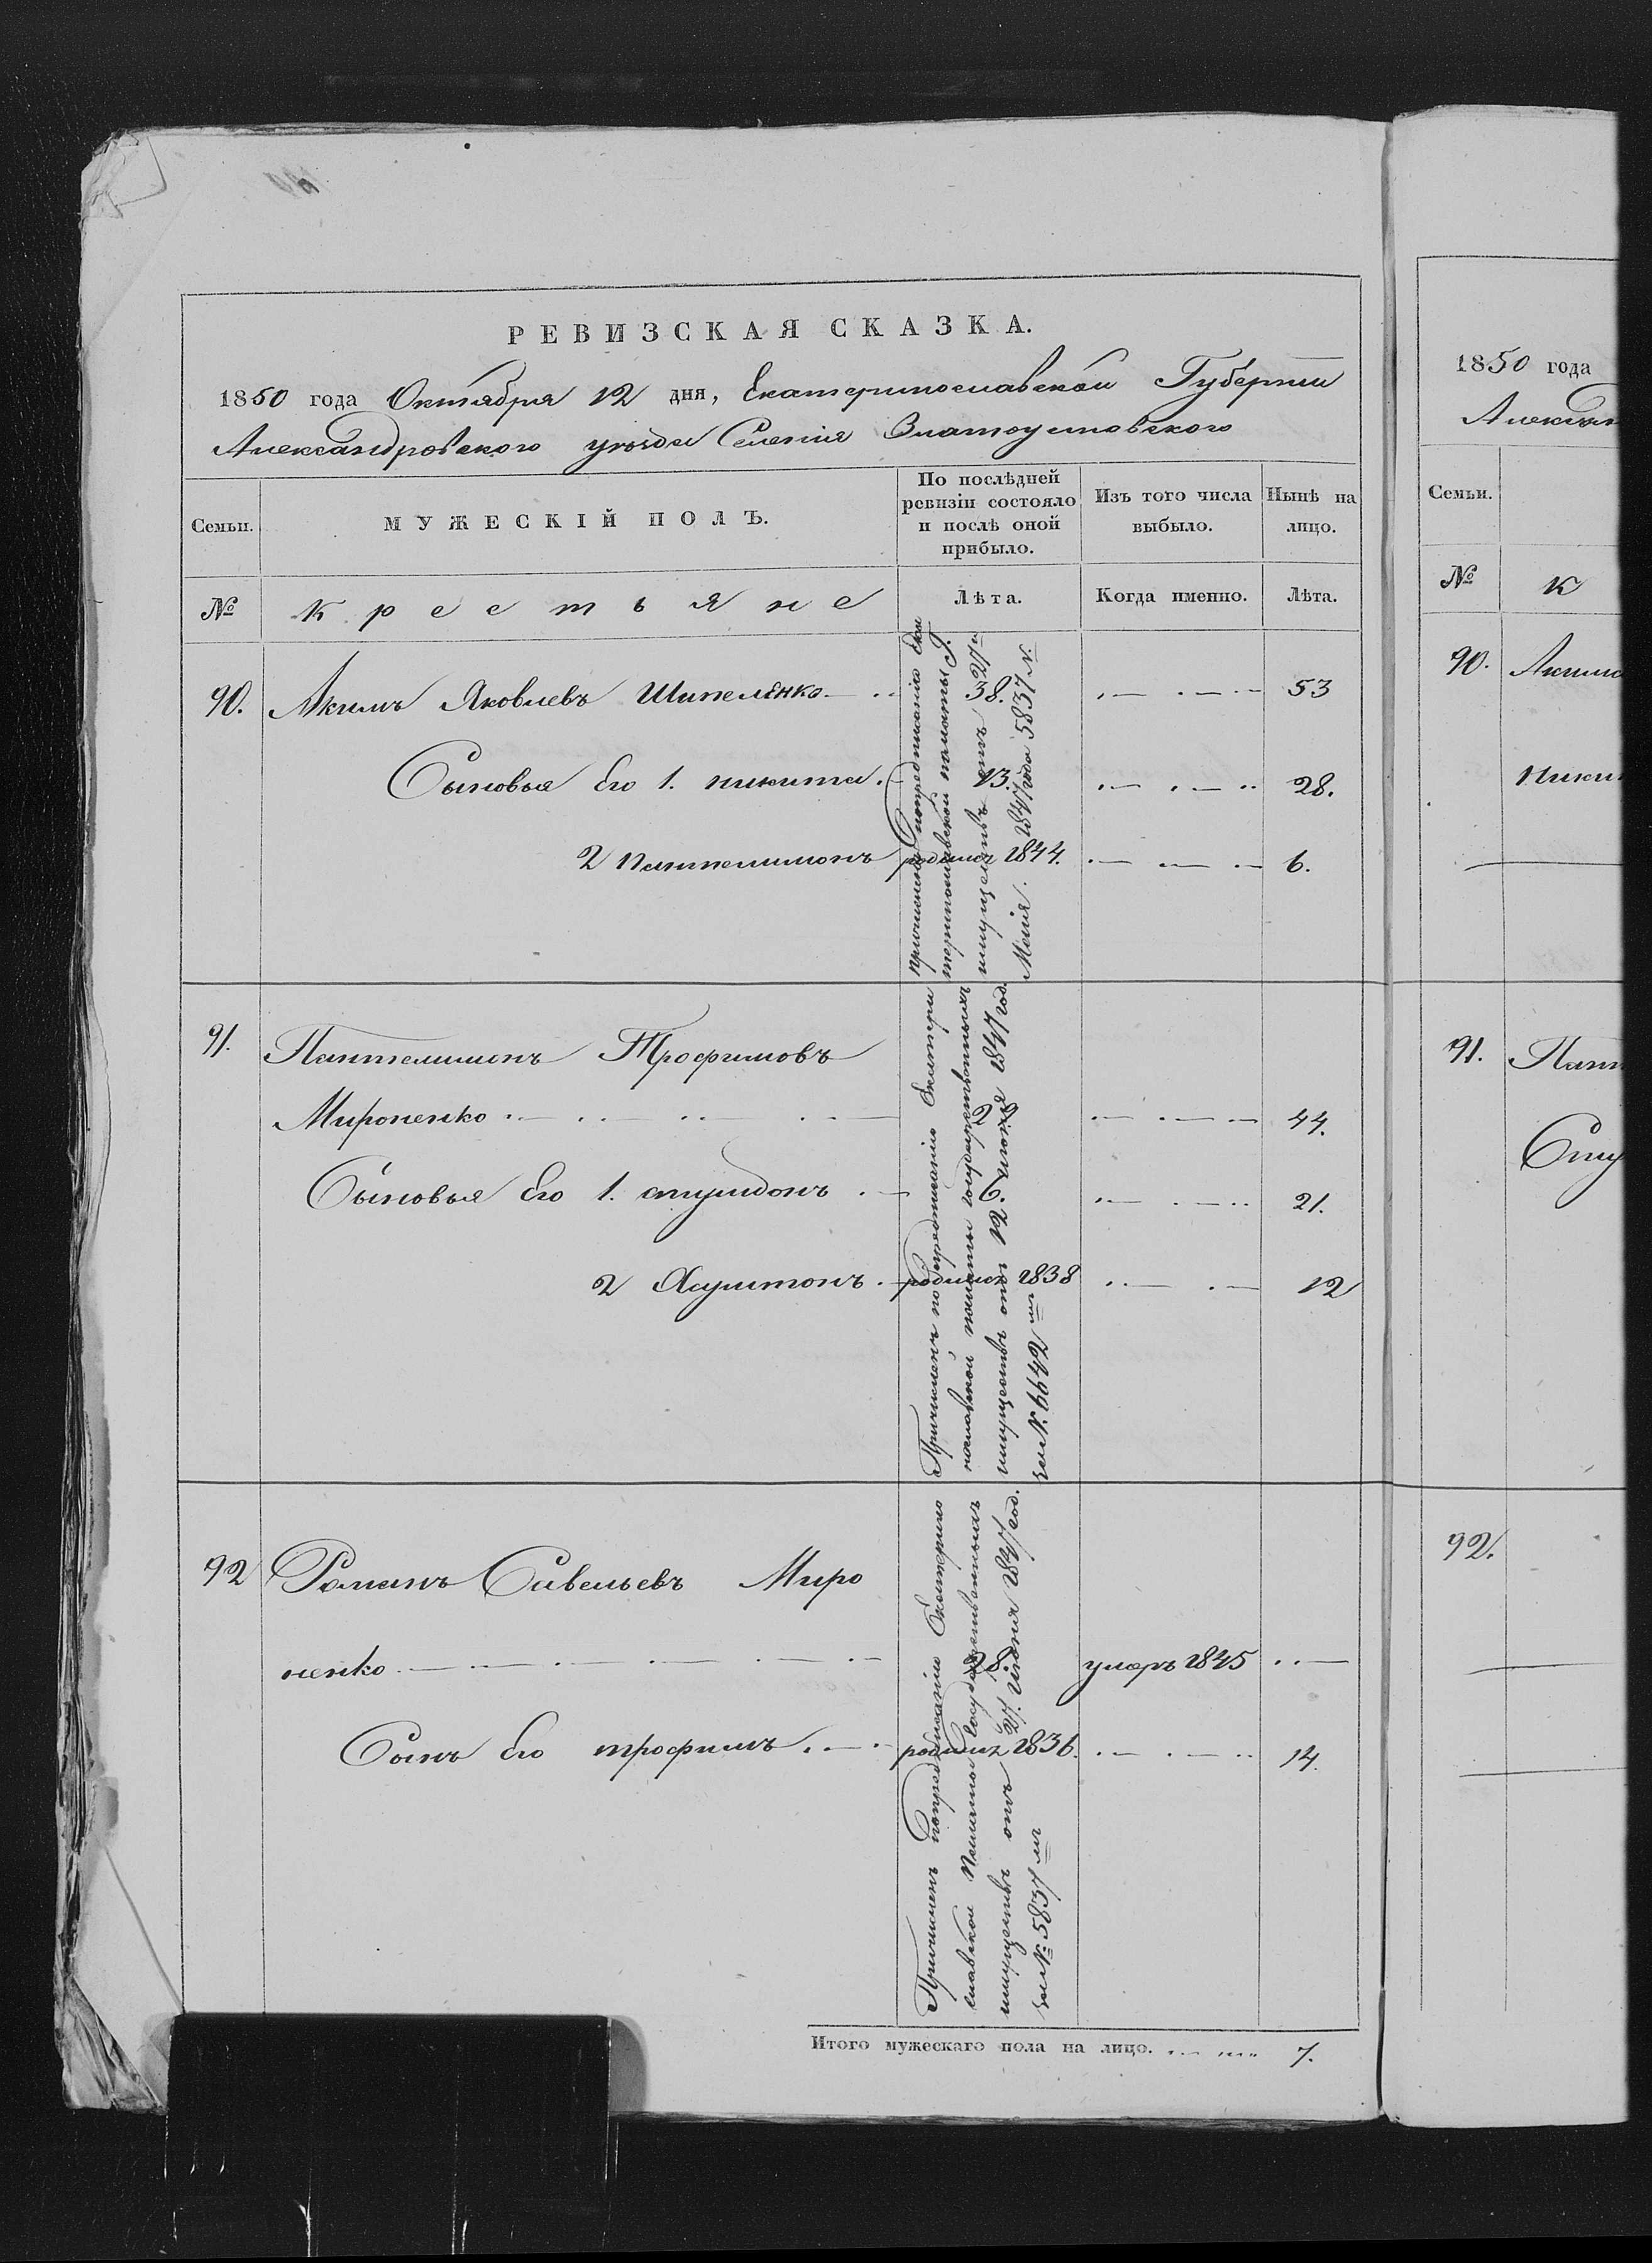 РЕВИЗСКАЯ СКАЗКА.
1850 года Октября 12 дня, Екатеринославской Губернии
Александровского уезда Селения Златоустовского
Семьи. МУЖЕСКІЙ ПОЛЪ. По послѣдней ревизіи состояло и послѣ оной прибыло. Изъ того числа выбыло. Нынѣ на лицо.
№ Крестьяне Лѣта. Когда именно. Лѣта.
90. Акимъ Яковлевъ Шипеленко 38. 53
Сыновья Его 1. никита 13. 28.
2 Пантелимонъ родился 1844. 6.
причислены Спопредписанію Ека
теринославской палаты Г.
имуществъ отъ 27 и
Июня 1847 года 5837 №.
91. Пантелимонъ Трофимовъ
Мироненко 44.
Сыновья Его 1. спиридонъ 6. 21.
2 Харитонъ родился 1838 12
Причисленъ по предписанію Екатери
нославской палаты государственныхъ
имуществъ отъ 12 июля 1847 год.
за №. 6642 мъ
92 Романъ Савельевъ Миро
ненко 28. умеръ 1845
Сынъ Его трофимъ родился 1836. 14.
Причисленъ Спопредписанію Екатерино
славской Палаты Государственныхъ
имуществъ отъ 27. Июня 1847 год.
за № 5837 мъ
Итого мужескаго пола на лицо. 7.
1850 года
Алексан
Семьи.
№ К
90. Акима
Ники
91. Пант
Спи
92.